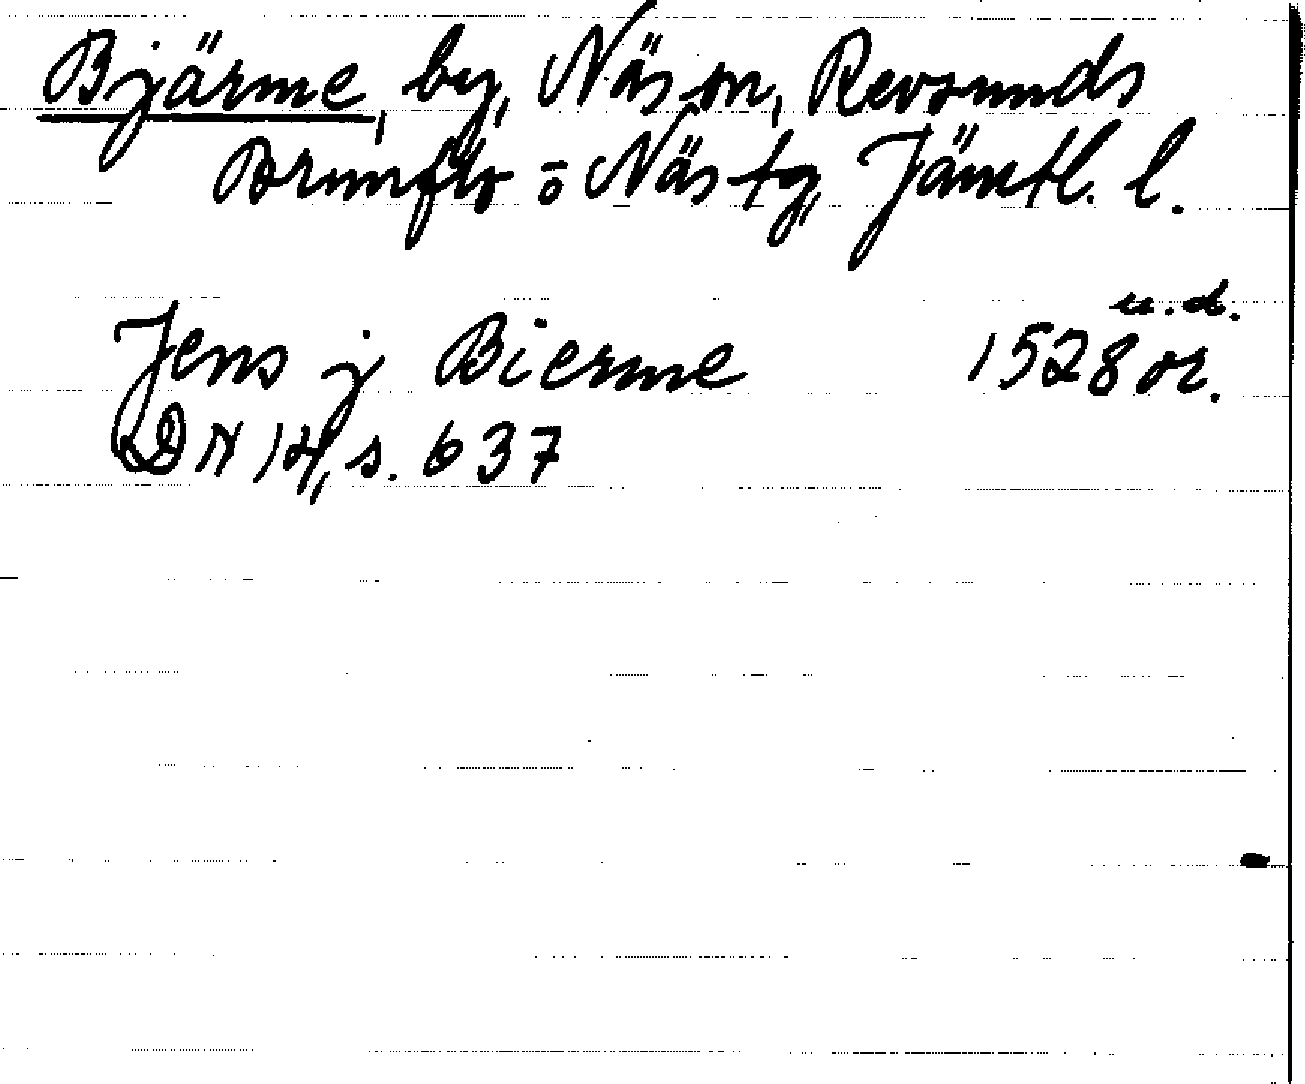 Bjärme, by, Näs sn, Revsunds
Brunflo o Näs tg, Jämtl. l.
u. d.
Jens j Bierme 1528 or.
DN 14, s. 637